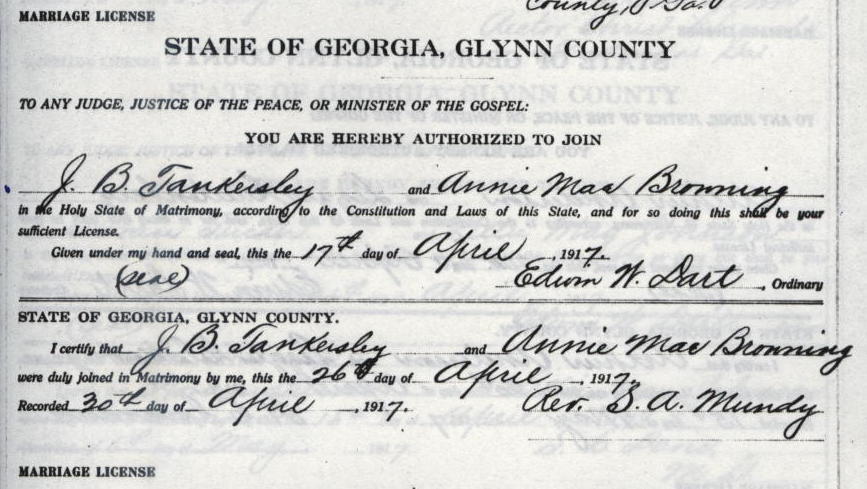 County, Ga.
MARRIAGE LICENSE
STATE OF GEORGIA, GLYNN COUNTY
TO ANY JUDGE, JUSTICE OF THE PEACE, OR MINISTER OF THE GOSPEL:
YOU ARE HEREBY AUTHORIZED TO JOIN
J. B. Tankersley and Annie Mae Browning
in the Holy State of Matrimony, according to the Constitution and Laws of this State, and for so doing this shall be your
sufficient License.
Given under my hand and seal, this the 17th day of April, 1917.
(seal) Edwin W. Dart, Ordinary
STATE OF GEORGIA, GLYNN COUNTY.
I certify that J. B. Tankersley and Annie Mae Browning
were duly joined in Matrimony by me, this the 26th day of April, 1917.
Recorded 30th day of April, 1917. Rev. S. A. Mundy
MARRIAGE LICENSE